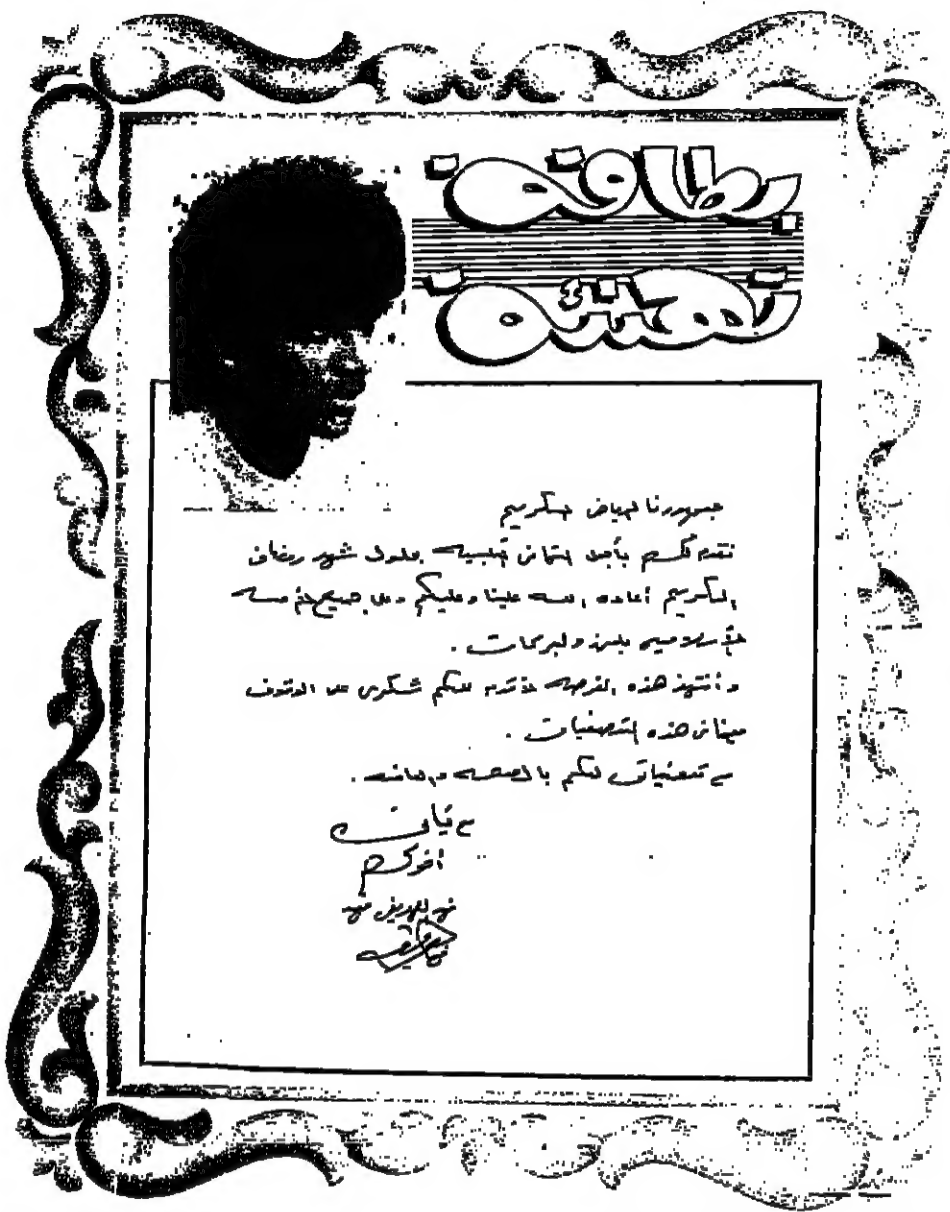 بطاقة
تهنئة
جمهورنا الرياضي الكريم
نتقدم لكم بأجمل التهاني القلبيه بحلول شهر رمضان
الكريم أعاده الله علينا وعليكم وعلى جميع الأمه
الإسلاميه باليمن والبركات .
و أنتهز هذه الفرصه لأقدم لكم شكري على الوقوف
معنا في هذه التصفيات .
مع تمنياتي لكم بالصحه والعافيه .
مع تحياتي
أخوكم